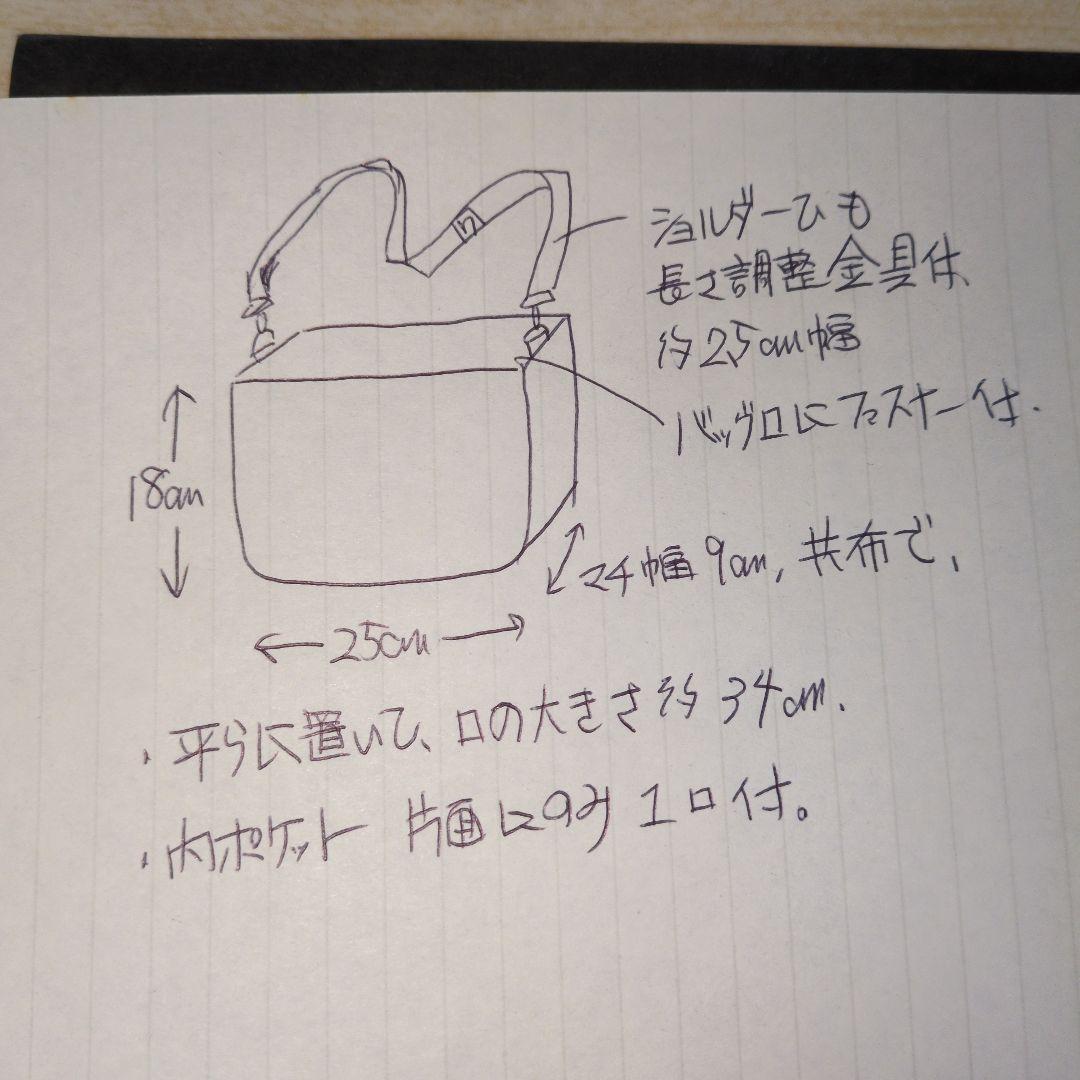 ショルダーひも
長さ調整金具付
約2.5cm幅
バッグ口にファスナー付.
18cm
マチ幅9cm, 共布で,
25cm
・平らに置いて、口の大きさ約34cm.
・内ポケット 片面にのみ1口付。